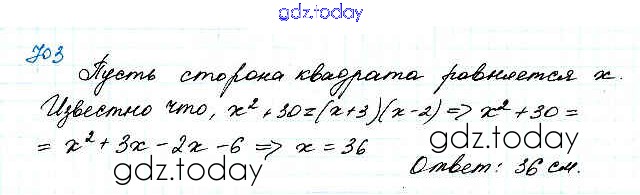 gdz.today
703
Пусть сторона квадрата равняется x.
Известно что, x² + 30 = (x+3)(x-2) => x² + 30 =
= x² + 3x - 2x - 6 => x = 36
gdz.today
gdz.today
Ответ: 36 см.
gdz.today